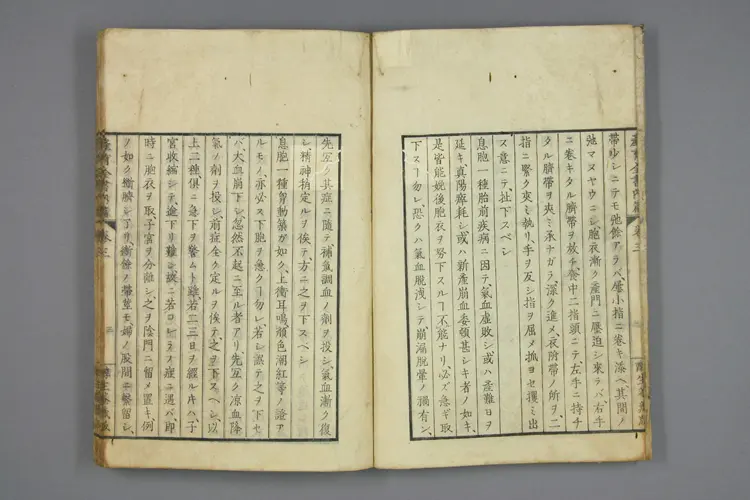 帶少シニテモ弛餘アラバ、屢小指ニ卷キ添ヘ其間ノ
弛マヌヤウニシ、胞衣漸ク産門ニ壓迫シ來ラバ、右手
ニ卷キタル臍帶ヲ放チ、養中二指頭ニテ、左手ニ持チ
タル臍帶ヲ夾ミ承ケナガラ、深ク進メ、衣附帶ノ所ヲ、二
指ニ緊ク夾ミ執リ、手ヲ反シ指ヲ屈メ抓ヨセ攫ミ出
ス意ニテ、扯下スベシ
息胞一種胎前疾病ニ因テ、氣血虛敗シ、或ハ産難日ヲ
延キ、眞陽瘁耗シ、或ハ新産崩血委頓甚シキ者ノ如キ、
是皆能娩後胞衣ヲ努下スルヿ不能ナリ、必ズ急ギ取
下スヿ勿レ、恐クハ氣血脱淺シテ、崩漏脱暈ノ禍有ン、
先冝ク其症ニ隨テ、補氣調血ノ劑ヲ投シ、氣血漸ク復
シ、精神揁定ルヲ俟テ、方ニ之ヲ下スベシ
息胞一種胷動築ガ如ク、上衝耳鳴、顏色潮紅等ノ證ア
ルモノ、亦必ス下胞ヲ急クヿ勿レ、若シ誤テ之ヲ下セ
バ、大血崩下シ、忽然不起ニ至ル者アリ、先冝ク凉血降
氣ノ劑ヲ投シ、前症全ク定ルヲ俟テ、之ヲ下スベシ、以
上二種俱ニ急下ヲ警ムト雖、若二三日ヲ經ルキハ、子
宮收縮シテ、途下リ難シ、誠ニ若ロヒラノ症ニ遇バ、即
時ニ胞衣ヲ取、子宮ヲ分離シ、之ヲ陰門ニ留メ置キ、例
ノ如ク衝臍シ了リ、衝餘ノ帶莖モ婦ノ股間ニ繫留シ、